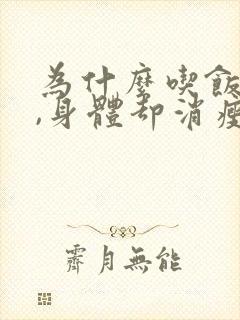 為什麼喫飯
,身體卻消瘦
霽月無能